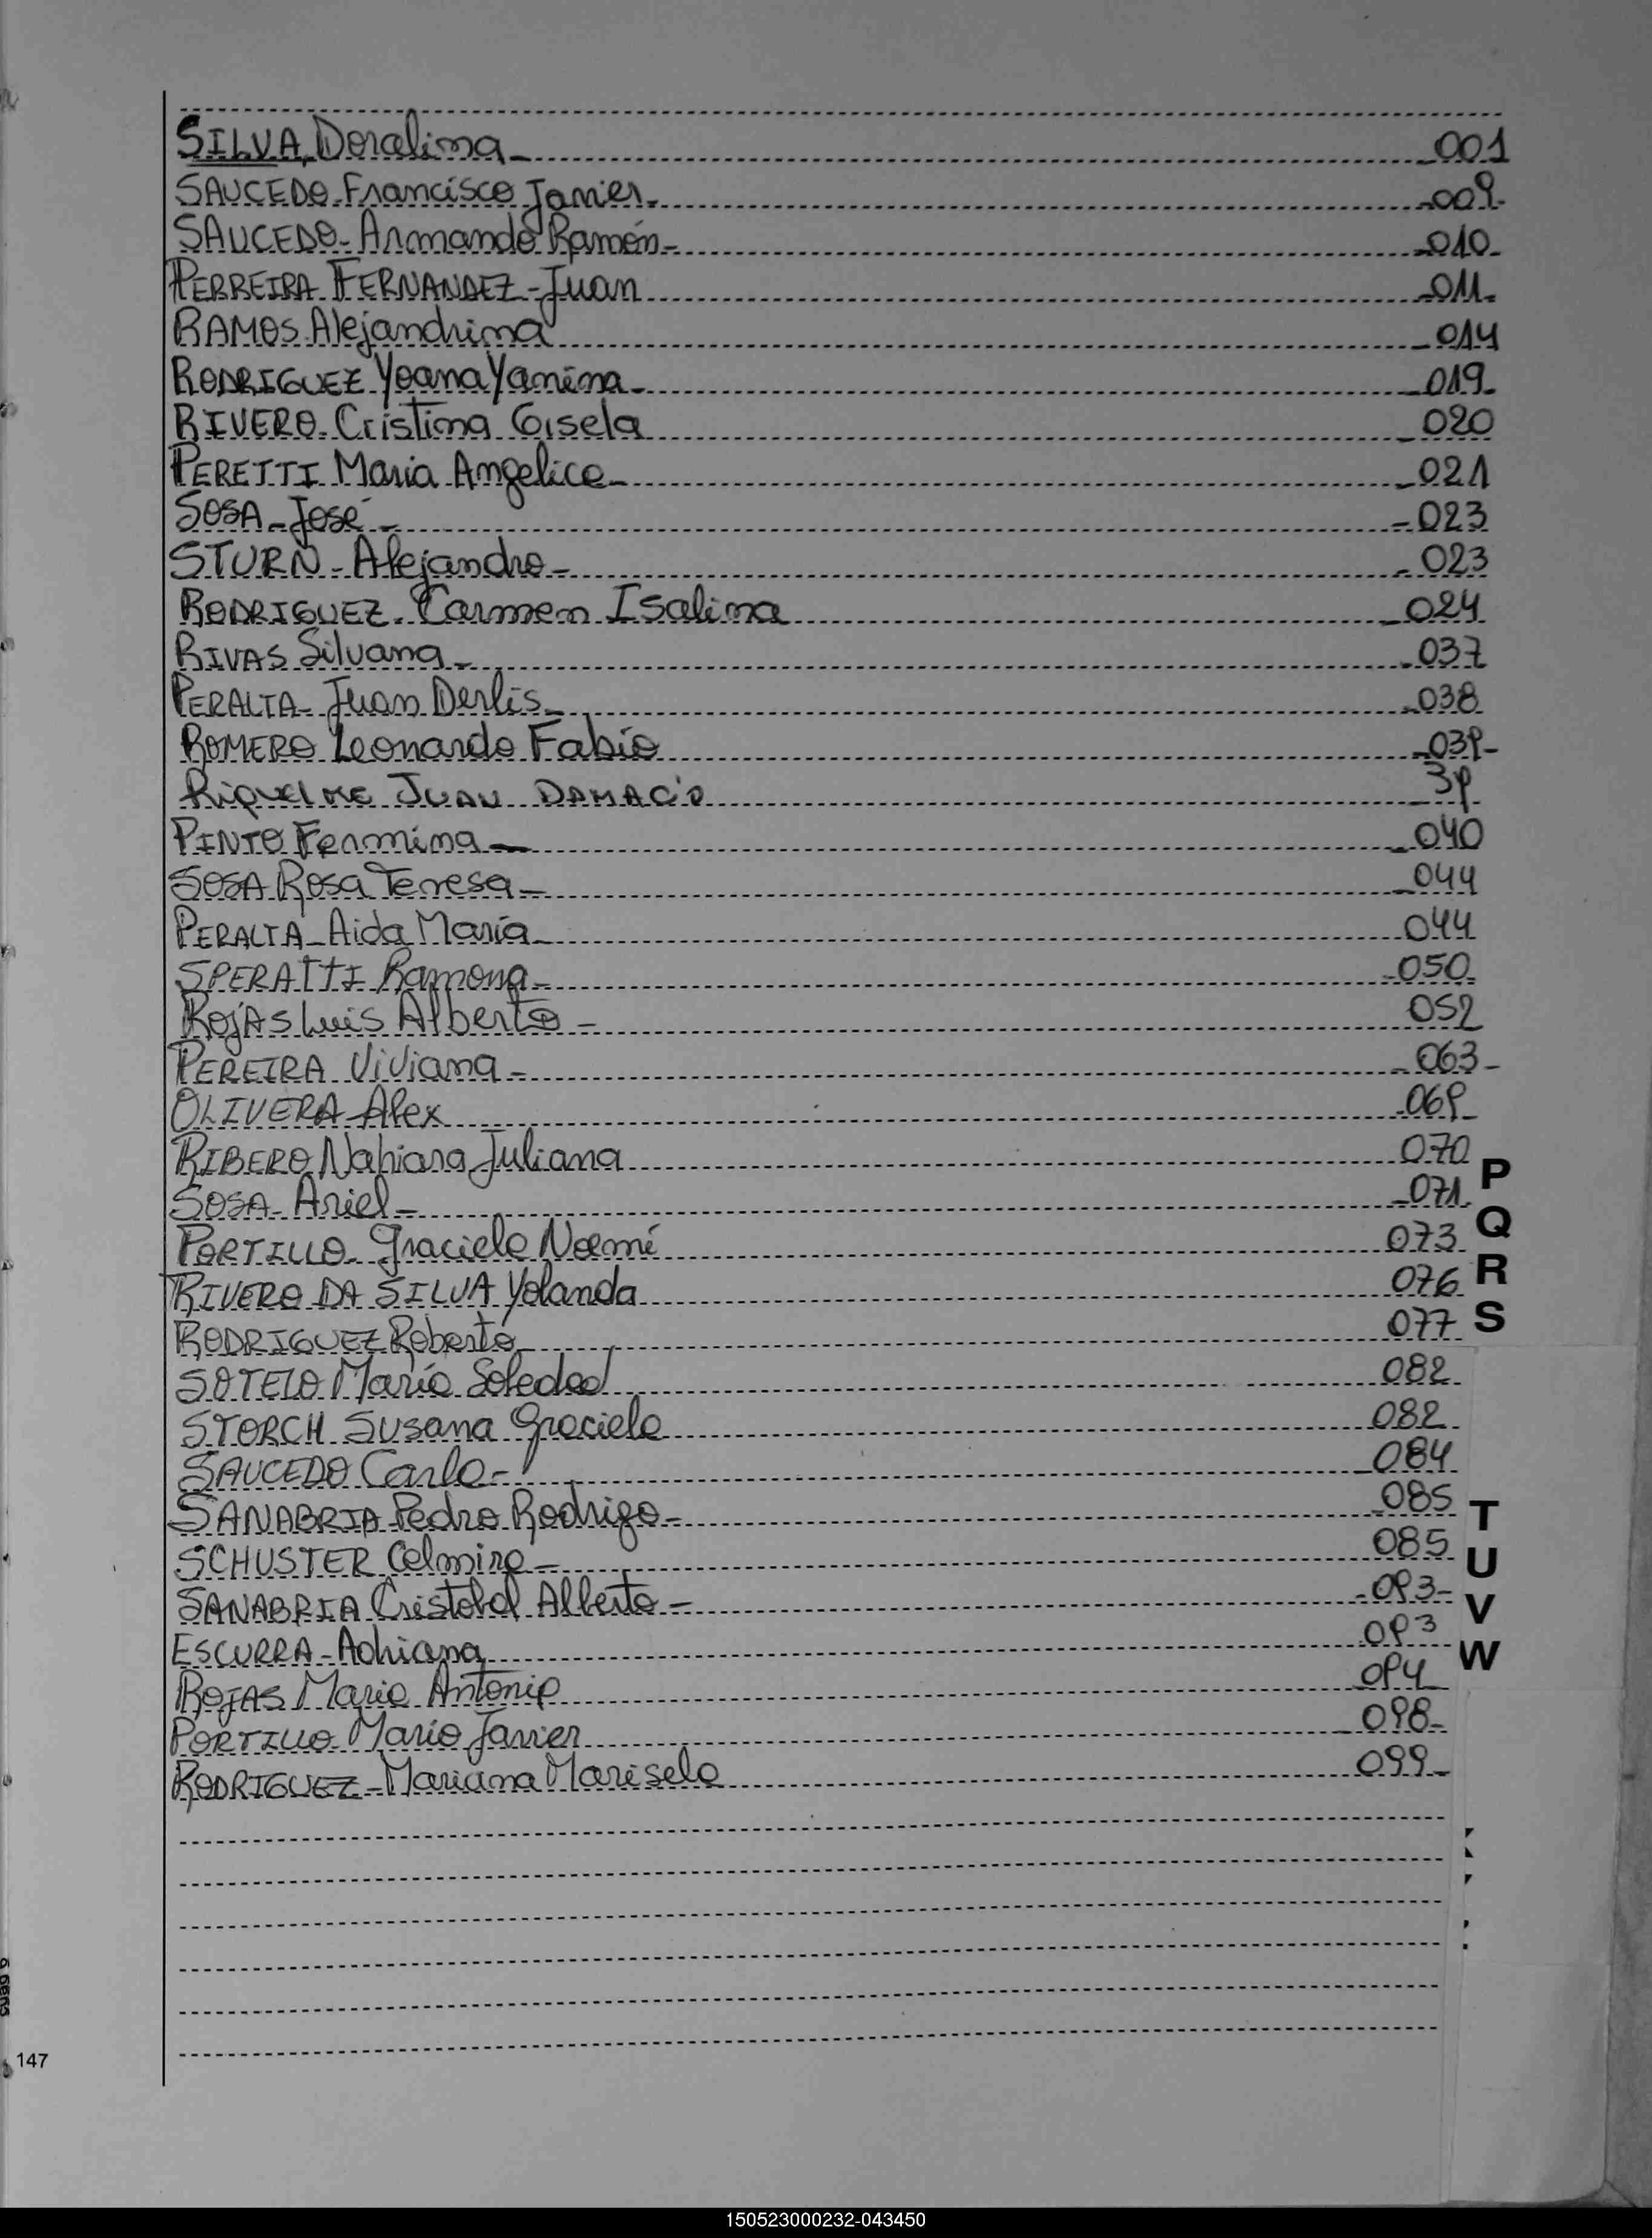 SILVA, Doralina - 001
SAUCEDO - Francisco Javier. - 009-
SAUCEDO - Armando Ramón - - 010-
PERREIRA FERNANDEZ - Juan - 011-
RAMOS Alejandrina - 014
RODRIGUEZ Yoana Yanina - - 019-
RIVERO - Cristina Gisela - 020
PERETTI Maria Angelica - - 021
SOSA - José - - 023
STURN - Alejandro - - 023
RODRIGUEZ - Carmen Isalina - 024
RIVAS Silvana - - 037
PERALTA - Juan Derlis - - 038
ROMERO Leonardo Fabio - 039-
Riquelme JUAN DAMACIO 39
PINTO Fermina - - 040
SOSA Rosa Teresa - - 044
PERALTA - Aida María - 044
SPERATTI Ramona - - 050
ROJAS Luis Alberto - 052
PEREIRA Viviana - - 063-
OLIVERA - Alex - 069-
RIBERO Nahiara Juliana 070
SOSA - Ariel - - 071
PORTILLO - Graciela Noemí 073
RIVERO DA SILVA Yolanda 076
RODRIGUEZ Roberto 077
SOTELO María Soledad 082
STORCH Susana Graciela 082
SAUCEDO Carlo - - 084
SANABRIA Pedro Rodrigo - - 085
SCHUSTER Celmiro - 085
SANABRIA Cristobal Alberto - - 093-
ESCURRA - Adriana 093
ROJAS Mario Antonio 094
PORTILLO Mario Javier - 098-
RODRIGUEZ - Mariana Marisela 099-
P
Q
R
S
T
U
V
W
147
150523000232-043450